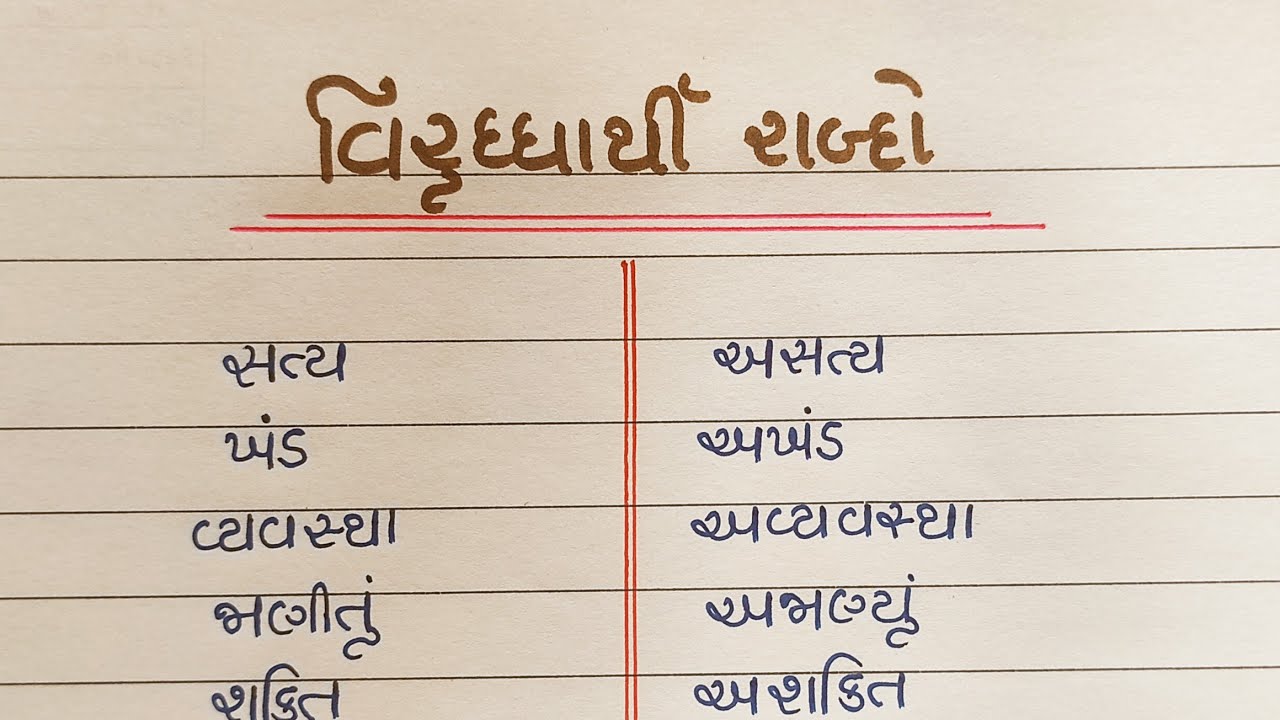 વિરૂધ્ધાર્થી શબ્દો
સત્ય અસત્ય
ખંડ અખંડ
વ્યવસ્થા અવ્યવસ્થા
જાણીતું અજાણ્યું
શકિત અશકિત